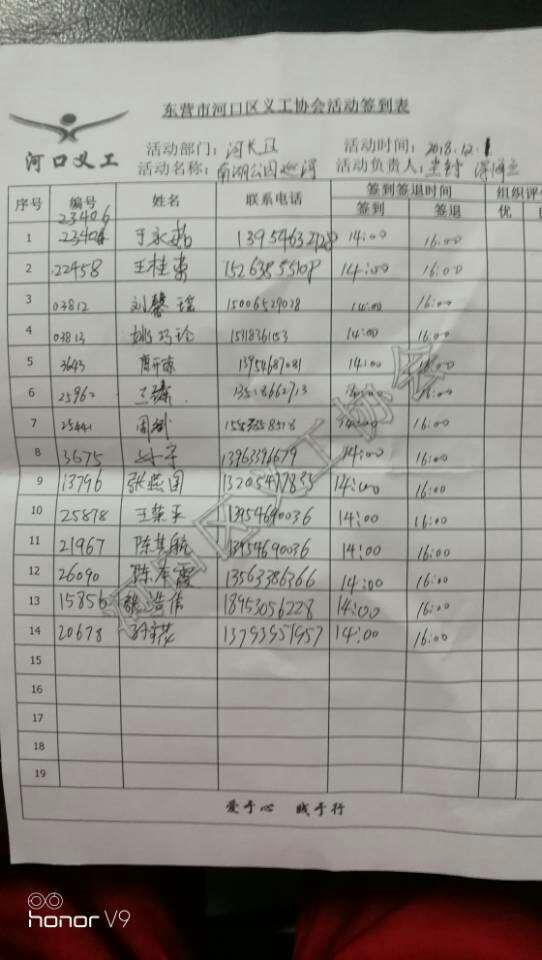 东营市河口区义工协会活动签到表
河口义工
活动部门：河长
活动时间：2018.12.1
活动名称：南湖公园巡河
活动负责人：
序号 编号 姓名 联系电话 签到签退时间 组织评
签到 签退 优
23406
1 于永 14:00 16:00
2 22458 王桂 14:00 16:00
3 03812 刘馨瑶 15006529028 14:00 16:00
4 03813 姚巧玲 14:00 16:00
5 3643 13954687081 14:00 16:00
6 25962 16:00
7 周 14:00 16:00
8 3675 13963396679 14:00 16:00
9 13796 张燕国 13205477833 14:00 16:00
10 25878 王荣平 13954690036 14:00 16:00
11 21967 陈其航 13954690036 14:00 16:00
12 26090 陈春霞 13563386366 14:00 16:00
13 15856 张浩信 18953056228 14:00 16:00
14 20678 13793951957 14:00 16:00
15
16
17
18
19
爱于心 践于行
河口区义工协会
honor V9